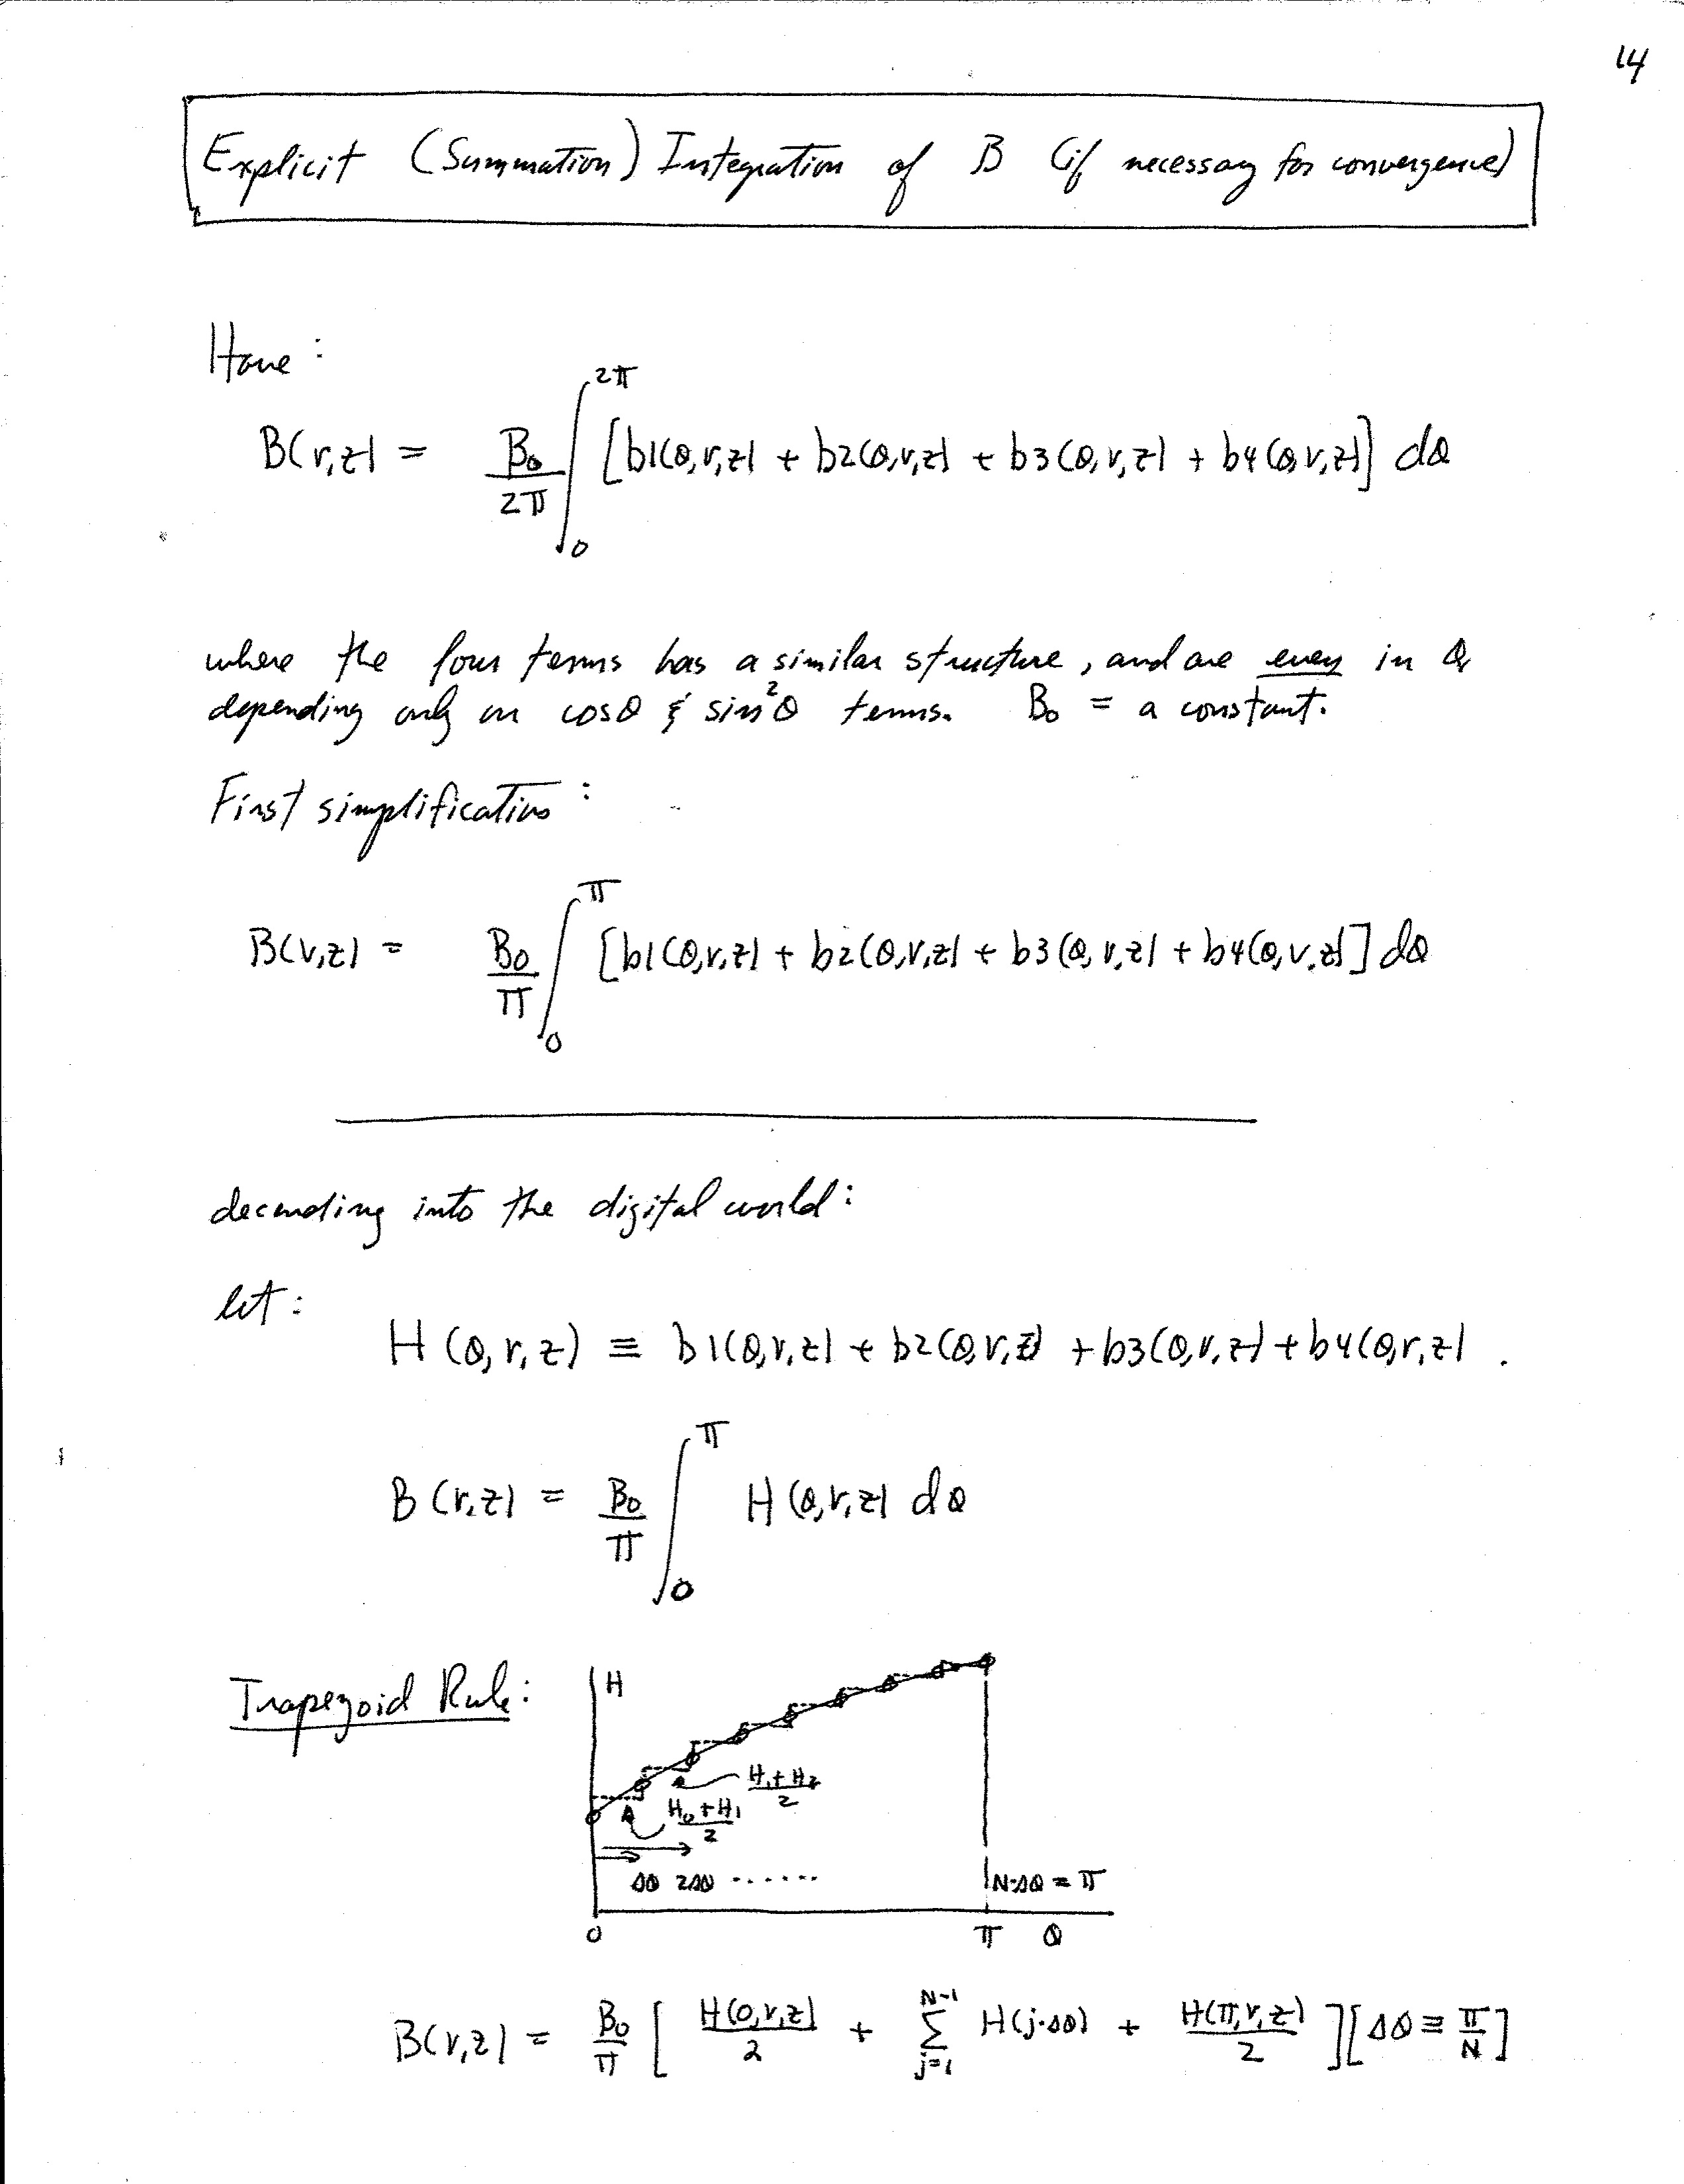 14
Explicit (Summation) Integration of B (if necessary for convergence)
Have :
B(r,z) = B₀/2π ∫₀^2π [b1(θ,r,z) + b2(θ,r,z) + b3(θ,r,z) + b4(θ,r,z)] dθ
where the four terms has a similar structure, and are even in θ,
depending only on cosθ & sin²θ terms. B₀ = a constant.
First simplification :
B(r,z) = B₀/π ∫₀^π [b1(θ,r,z) + b2(θ,r,z) + b3(θ,r,z) + b4(θ,r,z)] dθ
decending into the digital world :
let :
H(θ,r,z) ≡ b1(θ,r,z) + b2(θ,r,z) + b3(θ,r,z) + b4(θ,r,z) .
B(r,z) = B₀/π ∫₀^π H(θ,r,z) dθ
Trapezoid Rule :
H
H₁+H₂/2
H₀+H₁/2
Δθ 2Δθ ......
N·Δθ = π
0 π θ
B(r,z) = B₀/π [ H(0,r,z)/2 + Σ_{j=1}^{N-1} H(j·Δθ) + H(π,r,z)/2 ][Δθ ≡ π/N]